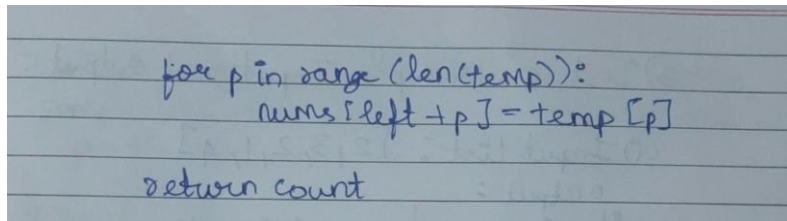 for p in range (len(temp)):
nums[left + p] = temp [p]
return count